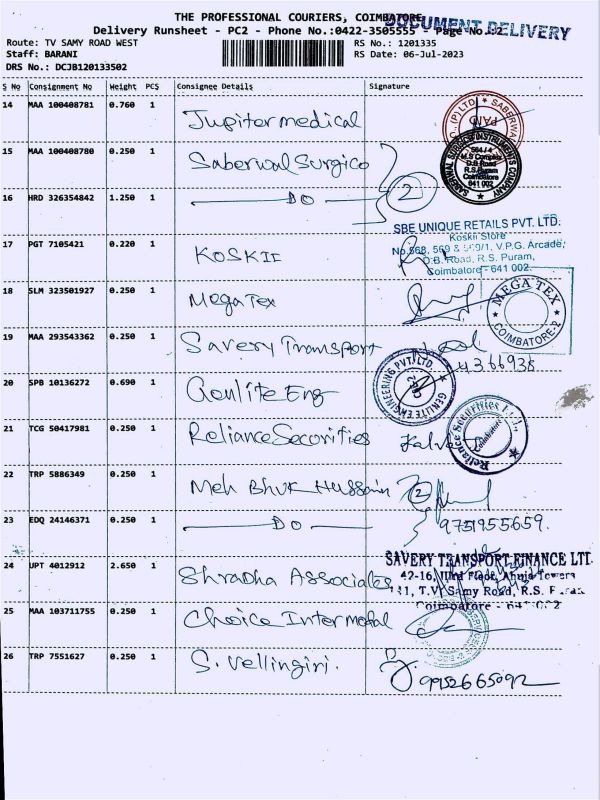 THE PROFESSIONAL COURIERS, COIMBATORE
DOCUMENT DELIVERY
Delivery Runsheet - PC2 - Phone No.:0422-3505555 Page No.:2
Route: TV SAMY ROAD WEST RS No.: 1201335
Staff: BARANI RS Date: 06-Jul-2023
DRS No.: DCJB120133502
S No Consignment No Weight PCS Consignee Details Signature
14 MAA 100408781 0.760 1 Jupiter medical
15 MAA 100408780 0.250 1 Saberwal Surgico
16 HRD 326354842 1.250 1 DO 2
SABERWAL SURGICAL INSTRUMENTS COMPANY
584/4
M.S Complex
D.B Road
R.S.Puram
Coimbatore
641 002
SBE UNIQUE RETAILS PVT. LTD.
Koskii Store
No.568, 569 & 569/1, V.P.G. Arcade,
D.B. Road, R.S. Puram,
Coimbatore - 641 002.
17 PGT 7105421 0.220 1 KOSKII
18 SLM 323501927 0.250 1 Mega Tex
MEGA TEX
COIMBATORE-2
19 MAA 293543362 0.250 1 Savery Transport
4366938
20 SPB 10136272 0.690 1 Genlite Eng
GENLITE ENGINEERING PVT. LTD.
21 TCG 50417981 0.250 1 Reliance Securities
Reliance Securities
Coimbatore
22 TRP 5886349 0.250 1 Meh Bhuk Hussain 2
23 EDQ 24146371 0.250 1 DO 9751955659.
SAVERY TRANSPORT FINANCE LTD.
42-16, Floor, Ahuja Towers
T.V. Samy Road, R.S.
Coimbatore
24 UPT 4012912 2.650 1 Shradha Associates
25 MAA 103711755 0.250 1 Choice Intermodal
26 TRP 7551627 0.250 1 S. Vellingiri. 9952665092